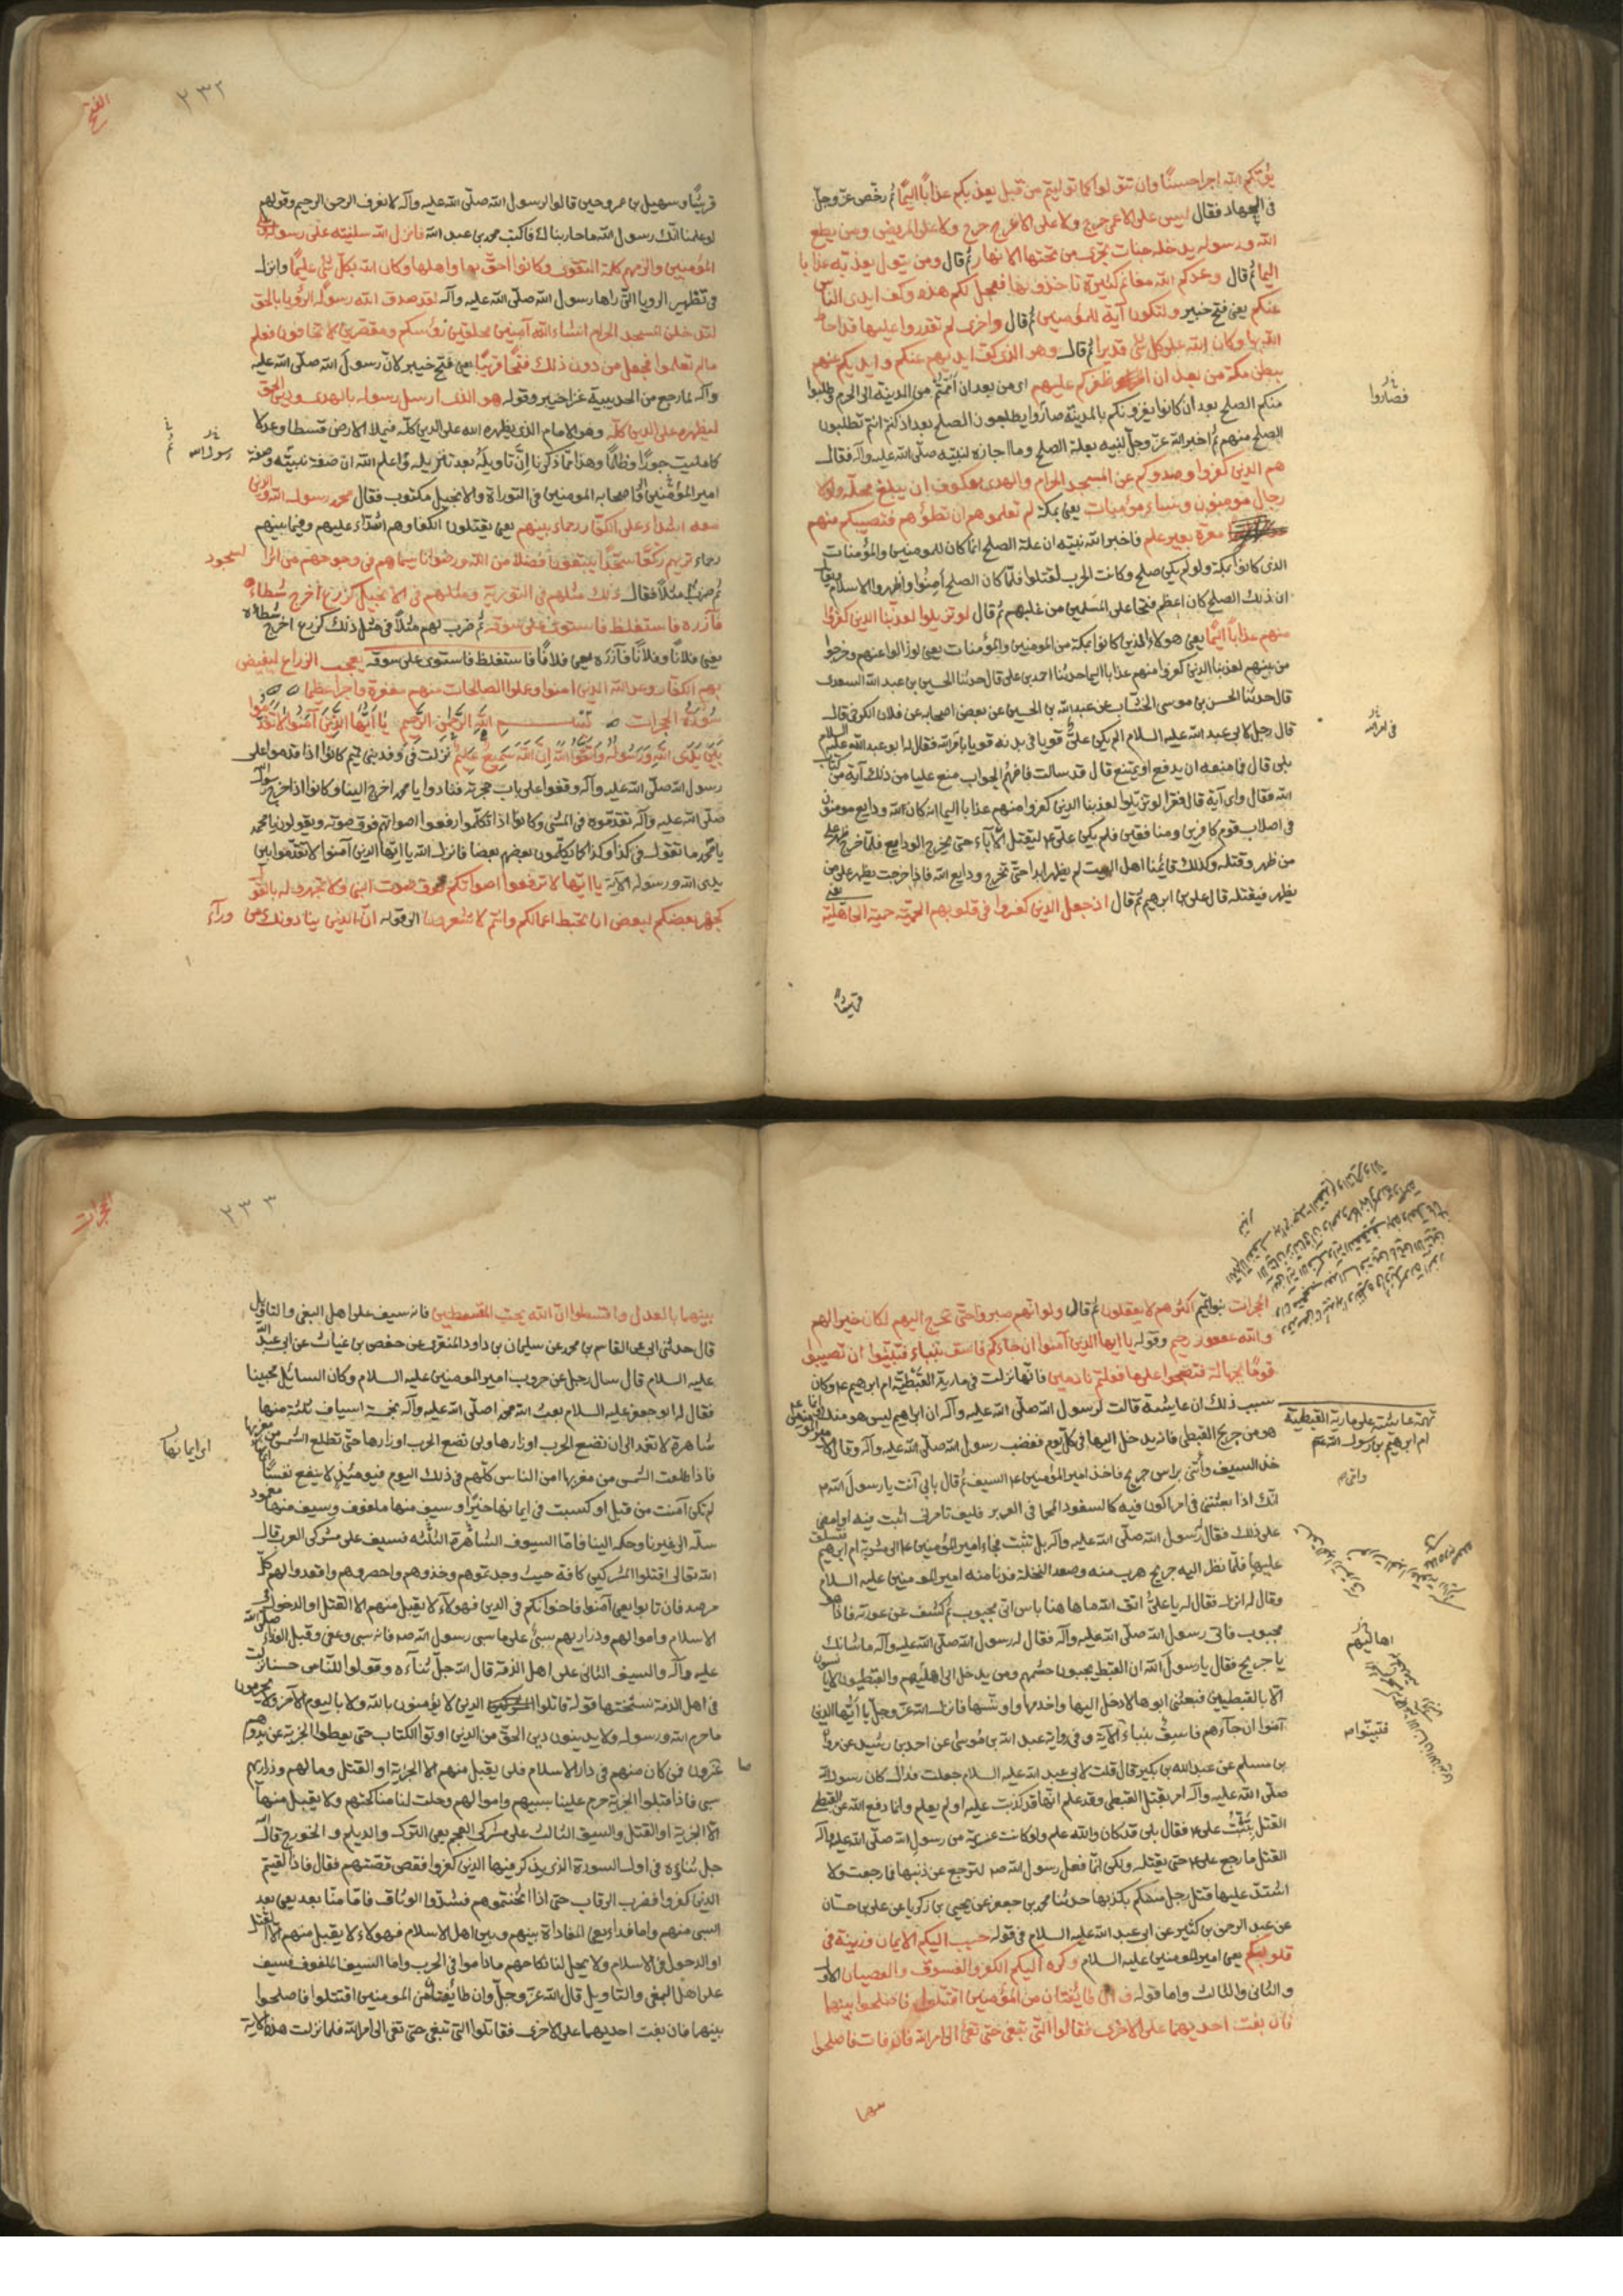 يؤتكم الله اجرا حسنًا وان تتولوا كما توليتم من قبل يعذبكم عذابًا اليمًا ثم رخّص عزّ وجلّ
فى الجهاد فقال ليس على الاعمى حرج ولا على الاعرج حرج ولا على المريض حرج ومن يطع
الله ورسوله يدخله جنات تجرى من تحتها الانهار ثم قال ومن يتول يعذبه عذابا
اليما ثم قال وعدكم الله مغانم كثيرة تاخذونها فعجل لكم هذه وكف ايدى الناس
عنكم يعنى فتح خيبر ولتكون آية للمؤمنين ثم قال واخرى لم تقدروا عليها قد احاط
الله بها وكان الله على كل شئ قديرا ثم قال وهو الذى كف ايديهم عنكم وايديكم عنهم
ببطن مكة من بعد ان اظفركم عليهم اى من بعد ان اممتم من المدينة الى الحرم وطلبوا
منكم الصلح بعد ان كانوا يغزونكم بالمدينة صاروا يطلبون الصلح بعد اذ كنتم انتم تطلبون
الصلح منهم ثم اخبر الله عزّ وجلّ نبيه بعلة الصلح وما اجازه لنبيه صلّى الله عليه وآله فقال
هم الذين كفروا وصدوكم عن المسجد الحرام والهدى معكوفا ان يبلغ محله ولولا
رجال مؤمنون ونساء مؤمنات يعنى بمكة لم تعلموهم ان تطؤهم فتصيبكم منهم
معرة بغير علم فاخبر الله نبيه ان علة الصلح انما كان للمومنين والمؤمنات
الذى كانوا بمكة ولو لم يكن صلح وكانت الحرب لقتلوا فلمّا كان الصلح آمنوا واظهروا الاسلام ويقال
ان ذلك الصلح كان اعظم فتحا على المسلمين من غلبهم ثم قال لو تزيلوا لعذبنا الذين كفروا
منهم عذابًا اليمًا يعنى هولاء الذين كانوا بمكة من المومنين والمؤمنات يعنى لو زالوا عنهم وخرجوا
من بينهم لعذبنا الذين كفروا منهم عذابا اليما حدثنا احمد بن على قال حدثنا الحسين بن عبد الله السعدى
قال حدثنا الحسن بن موسى الخشاب عن عبد الله بن الحسين عن بعض اصحابه عن فلان الكرخى قال
قال رجل لابى عبد الله عليه السلام الم يكن علىّ قويا فى بدنه قويا بامر الله فقال له ابو عبد الله عليه السلام
بلى قال فما منعه ان يدفع او يمتنع قال قد سالت فافهم الجواب منع عليا من ذلك آية من كتاب
الله فقال واى آية قال فقرا لو تزيلوا لعذبنا الذين كفروا منهم عذابا اليما انه كان لله ودايع مومنون
فى اصلاب قوم كافرين ومنافقين فلم يكن علىّ ع ليقتل الآباء حتى يخرج الودايع فلمّا خرج ظهر على
من ظهر وقتله وكذلك قائمنا اهل البيت لم يظهر ابدا حتى تخرج ودايع الله فاذا خرجت يظهر على من
يظهر فيقتله قال على بن ابرهيم ثم قال اذ جعل الذين كفروا فى قلوبهم الحمية حمية الجاهلية يعنى
قريشًا
فصاروا
فى امر الله
الفتح
٢٣٢
قريشًا وسهيل بن عمرو حين قالوا لرسول الله صلّى الله عليه وآله لا نعرف الرحمن الرحيم وقولهم
لو علمنا انّك رسول الله ما حاربناك فاكتب محمد بن عبد الله فانزل الله سكينته على رسوله وعلى
المؤمنين والزمهم كلمة التقوى وكانوا احقّ بها واهلها وكان الله بكلّ شئ عليمًا وانزل
فى تطهير الرويا التى راها رسول الله صلّى الله عليه وآله لقد صدق الله رسوله الرؤيا بالحق
لتدخلن المسجد الحرام انشاء الله آمنين محلقين رؤسكم ومقصرين لا تخافون فعلم
ما لم تعلموا فجعل من دون ذلك فتحًا قريبًا يعنى فتح خيبر لانّ رسول الله صلّى الله عليه
وآله لما رجع من الحديبية غزا خيبر وقوله هو الذى ارسل رسوله بالهدى ودين الحق
ليظهره على الدين كلّه وهو الامام الذى يظهره الله على الدين كلّه فيملا الارض قسطا وعدلا
كما ملئت جورًا وظلمًا وهذا ممّا ذكرنا انّ تاويله بعد تنزيله واعلم الله ان صفة نبيه وصفة
امير المؤمنين واصحابه المومنين فى التوراة والانجيل مكتوب فقال محمد رسول الله والذين
معه اشداء على الكفار رحماء بينهم يعنى يقتلون الكفار وهم اشدّاء عليهم وفيما بينهم
رحماء تريهم ركّعًا سجّدًا يبتغون فضلا من الله ورضوانا سيماهم فى وجوههم من اثر السجود
ثم ضرب مثلا فقال ذلك مثلهم فى التورية ومثلهم فى الانجيل كزرع اخرج شطاه
فآزره فاستغلظ فاستوى على سوقه ثم ضرب لهم مثلا فى مثل ذلك كزرع اخرج شطاه
يعنى فلانًا وفلانًا فآزره يعنى فلانًا فاستغلظ فاستوى على سوقه يعجب الزراع ليغيض
بهم الكفار وعد الله الذين امنوا وعملوا الصالحات منهم مغفرة واجرا عظيما
سورة الحجرات بسم الله الرحمن الرحيم يا ايها الذين آمنوا لا تقدموا
بين يدى الله ورسوله واتقوا الله ان الله سميع عليم نزلت فى وفد بنى تميم كانوا اذا قدموا على
رسول الله صلّى الله عليه وآله وقفوا على باب حجرته فنادوا يا محمد اخرج الينا وكانوا اذا خرج رسول الله
صلّى الله عليه وآله تقدموه فى المشى وكانوا اذا تكلموا رفعوا اصواتهم فوق صوته ويقولون يا محمد
يا محمد ما تقول فى كذا وكذا كما يكلمون بعضهم بعضا فانزل الله يا ايها الذين آمنوا لا تقدموا بين
يدى الله ورسوله الآية يا ايها لا ترفعوا اصواتكم فوق صوت النبى ولا تجهروا له بالقول
كجهر بعضكم لبعض ان تحبط اعمالكم وانتم لا تشعرون الى قوله ان الذين ينادونك من وراء
رسول الله
الحجرات بنو تميم اكثرهم لا يعقلون ثم قال ولو انهم صبروا حتى تخرج اليهم لكان خيرا لهم
والله غفور رحيم وقوله يا ايها الذين آمنوا ان جاءكم فاسق بنباء فتبينوا ان تصيبوا
قومًا بجهالة فتصبحوا على ما فعلتم نادمين فانها نزلت فى مارية القبطية ام ابرهيم ع وكان
سبب ذلك ان عايشة قالت لرسول الله صلّى الله عليه وآله ان ابراهيم ليس هو منك انما
هو من جريح القبطى فانه يدخل اليها فى كل يوم فغضب رسول الله صلّى الله عليه وآله وقال لامير المومنين ع
خذ السيف وأتنى براس جريح فاخذ امير المؤمنين ع السيف ثم قال بابى انت يا رسول الله
انّك اذا بعثتنى فى امر اكون فيه كالسفود المحما فى الوبر فكيف تامرنى اثبت فيه او امضى
على ذلك فقال رسول الله صلّى الله عليه وآله بل تثبت فجاء امير المؤمنين ع الى مشربة ام ابرهيم فتسلق
عليها فلمّا نظر اليه جريح هرب منه وصعد النخلة فدنا منه امير المومنين عليه السلام
وقال له انزل فقال له يا علىّ اتق الله ما هاهنا باس انى مجبوب ثم كشف عن عورته فاذا هو
مجبوب فاتى رسول الله صلّى الله عليه وآله فقال له رسول الله صلّى الله عليه وآله ما شانك
يا جريح فقال يا رسول الله ان القبط يجبون حشمهم ومن يدخل الى اهليهم والقبطيون لا يانسون
الا بالقبطيين فبعثنى ابوها لادخل اليها واخدمها واونسها فانزل الله عزّ وجلّ يا ايّها الذين
آمنوا ان جاءكم فاسق بنباء الآية وفى رواية عبد الله بن موسى عن احمد بن رشيد عن مروان
بن مسلم عن عبد الله بن بكير قال قلت لابى عبد الله عليه السلام جعلت فداك كان رسول الله
صلّى الله عليه وآله امر بقتل القبطى وقد علم انها قد كذبت عليه او لم يعلم وانما دفع الله عن القبطى
القتل بتثبت على ع فقال بلى قد كان والله علم ولو كانت عزيمة من رسول الله صلّى الله عليه وآله
القتل ما رجع على ع حتى يقتله ولكن انّما فعل رسول الله ص لترجع عن ذنبها فما رجعت ولا
اشتد عليها قتل رجل مسلم بكذبها حدثنا محمد بن جعفر عن يحيى بن زكريا عن على بن حسان
عن عبد الرحمن بن كثير عن ابى عبد الله عليه السلام فى قوله حبب اليكم الايمان وزينه فى
قلوبكم يعنى امير المومنين عليه السلام وكره اليكم الكفر والفسوق والعصيان الاول
والثانى والثالث واما قوله وان طايفتان من المؤمنين اقتتلوا فاصلحوا بينهما
فان بغت احديهما على الاخرى فقاتلوا التى تبغى حتى تفئ الى امر الله فان فاءت فاصلحوا
بينهما
تهمة عائشة على مارية القبطية
ام ابرهيم بن رسول الله ص
اهاليهم
فتبينوا ص
الحجرات
٢٣٣
بينهما بالعدل واقسطوا انّ الله يحب المقسطين فانه سيف على اهل البغى والتاويل
قال حدثنى ابى عن القاسم بن محمد عن سليمان بن داود المنقرى عن حفص بن غياث عن ابى عبد الله
عليه السلام قال سال رجل عن حروب امير المومنين عليه السلام وكان السايل محبينا
فقال له ابو جعفر عليه السلام بعث الله محمدا صلّى الله عليه وآله بخمسة اسياف ثلثة منها
شاهرة لا تغمد الى ان تضع الحرب اوزارها ولن تضع الحرب اوزارها حتّى تطلع الشمس من مغربها
فاذا طلعت الشمس من مغربها امن الناس كلّهم فى ذلك اليوم فيومئذ لا ينفع نفسًا ايمانها
لم تكن آمنت من قبل او كسبت فى ايمانها خيرًا وسيف منها ملفوف وسيف منها مغمود
سلّه الى غيرنا وحكمه الينا فامّا السيوف الشاهرة الثلثه فسيف على مشركى العرب قال
الله تعالى اقتلوا المشركين كافة حيث وجدتموهم وخذوهم واحصروهم واقعدوا لهم كلّ
مرصد فان تابوا يعنى آمنوا فاخوانكم فى الدين فهولاء لا يقبل منهم الا القتل او الدخول فى
الاسلام واموالهم وذراريهم سبى على ما سبى رسول الله ص فانه سبى وعفى وقبل الفداء صلّى الله
عليه وآله والسيف الثانى على اهل الذمة قال الله جلّ ثناءه وقولوا للناس حسنا نزلت
فى اهل الذمة نسختها قوله قاتلوا الذين لا يؤمنون بالله ولا باليوم الآخر ولا يحرمون
ما حرم الله ورسوله ولا يدينون دين الحق من الذين اوتوا الكتاب حتى يعطوا الجزية عن يد وهم
صاغرون فمن كان منهم فى دار الاسلام فلن يقبل منهم الا الجزية او القتل ومالهم وذراريهم
سبى فاذا قبلوا الجزية حرم علينا سبيهم واموالهم وحلت لنا مناكحتهم ولا يقبل منهم
الا الجزية او القتل والسيف الثالث على مشركى العجم يعنى الترك والديلم والخزرج قال الله
جل ثناؤه فى اول السورة الذى يذكر فيها الذين كفروا فقص قصتهم فقال فاذا لقيتم
الذين كفروا فضرب الرقاب حتى اذا اثخنتموهم فشدّوا الوثاق فامّا منّا بعد يعنى بعد
السبى منهم واما فداء يعنى المفاداة بينهم وبين اهل الاسلام فهولاء لا يقبل منهم الا القتل
او الدخول فى الاسلام ولا يحل لنا نكاحهم ما داموا فى الحرب واما السيف الملفوف فسيف
على اهل البغى والتاويل قال الله عزّ وجلّ وان طايفتان من المومنين اقتتلوا فاصلحوا
بينهما فان بغت احديهما على الاخرى فقاتلوا التى تبغى حتى تفى الى امر الله فلما نزلت هذه الآية
اى ايمانها